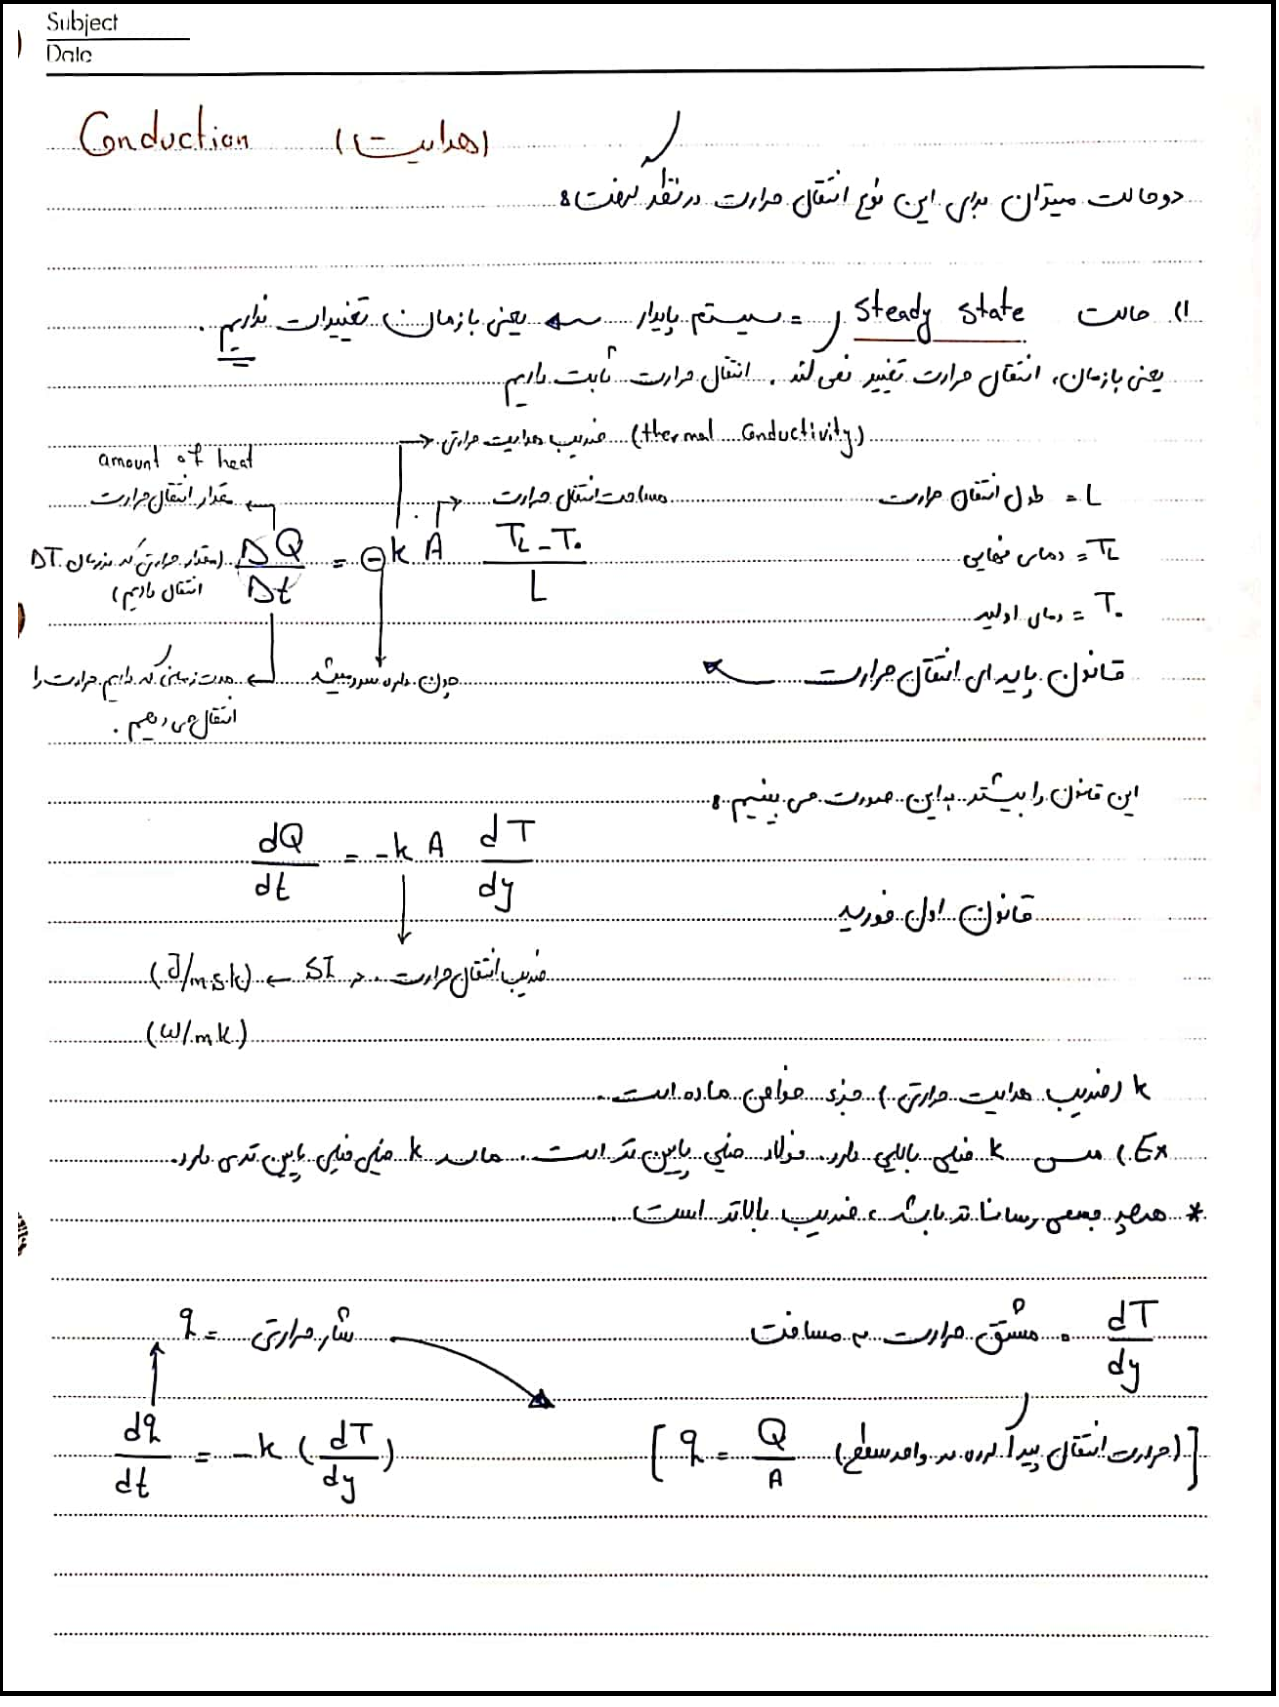 Subject
Date
Conduction (هدایت)
دو حالت میتوان برای این نوع انتقال حرارت در نظر گرفت:
1) حالت steady state = سیستم پایدار ← یعنی با زمان تغییرات نداریم.
یعنی با زمان، انتقال حرارت تغییر نمی کند. انتقال حرارت ثابت داریم
ضریب هدایت حرارتی (thermal conductivity)
amount of heat
مقدار انتقال حرارت
مساحت انتقال حرارت
L = طول انتقال حرارت
(مقدار حرارتی که در زمان DT انتقال داریم)
ΔQ/Δt = - k A (T_L - T_0)/L
T_L = دمای نهایی
T_0 = دمای اولیه
مدت زمانی که داریم حرارت را انتقال می دهیم.
چون داره سرد میشه
قانون پایه ای انتقال حرارت
این قانون را بیشتر به این صورت می بینیم:
dQ/dt = -k A dT/dy
قانون اول فوریه
ضریب انتقال حرارت → SI → (J/m.s.k)
(W/m.k)
k (ضریب هدایت حرارتی) جزء خواص ماده است.
Ex) مس k خیلی بالایی دارد. فولاد خیلی پایین تر است. k خیلی خیلی پایین تری دارد.
* هرچه جسمی رساناتر باشد، ضریب بالاتر است.
q = شار حرارتی
dT/dy = مشتق حرارت به مسافت
dq/dt = -k (dT/dy)
[q = Q/A (حرارت انتقال پیدا کرده بر واحد سطح)]